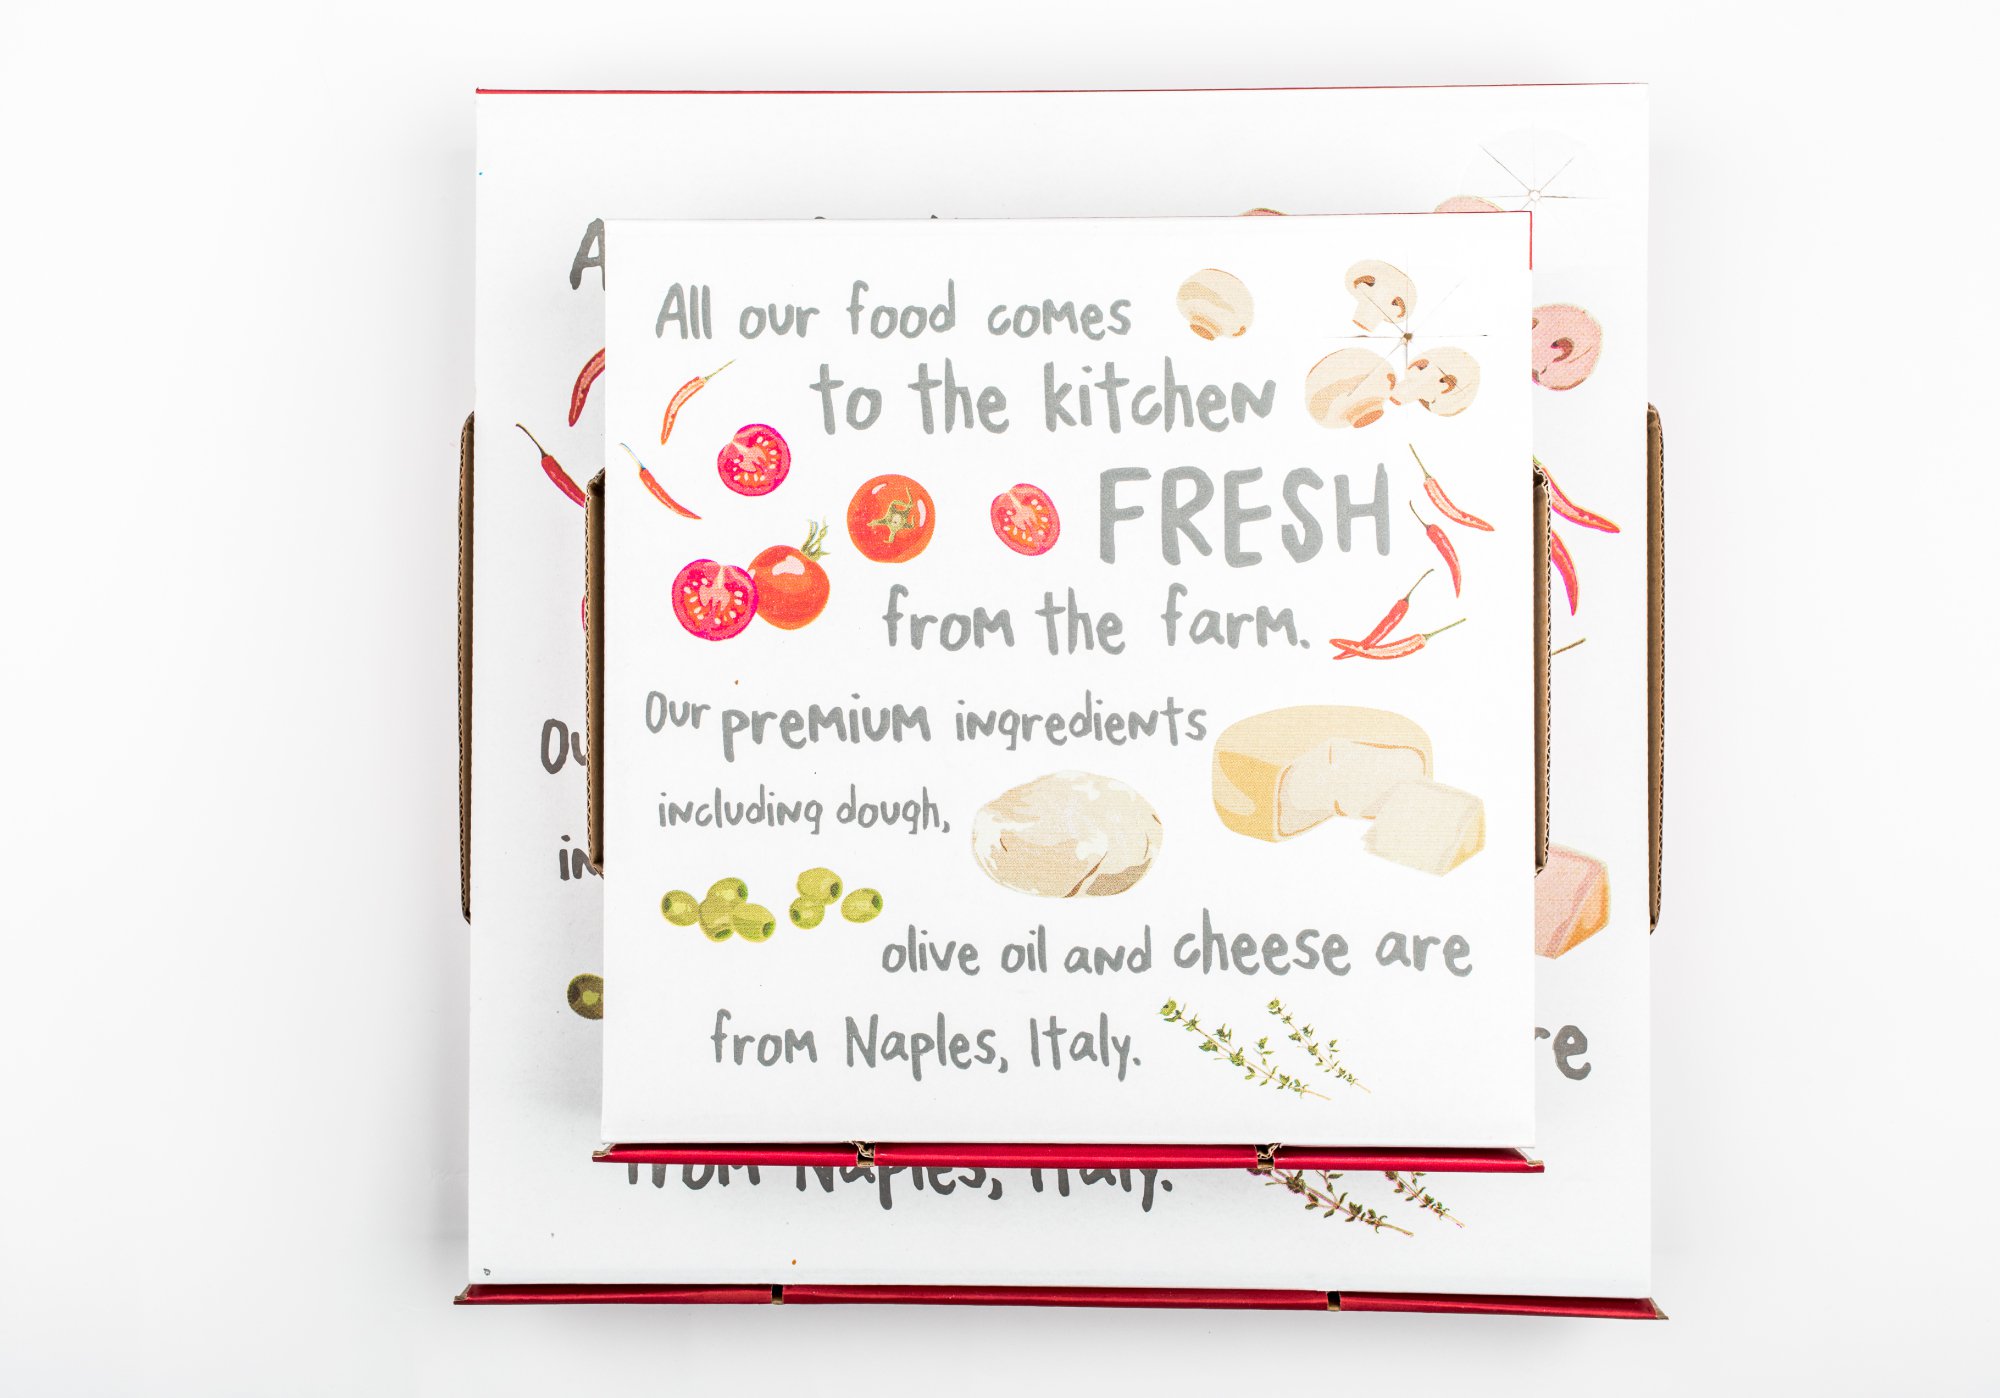 All our food comes
to the kitchen
FRESH
from the farm.
Our premium ingredients
including dough,
olive oil and cheese are
from Naples, Italy.
from Naples, Italy.